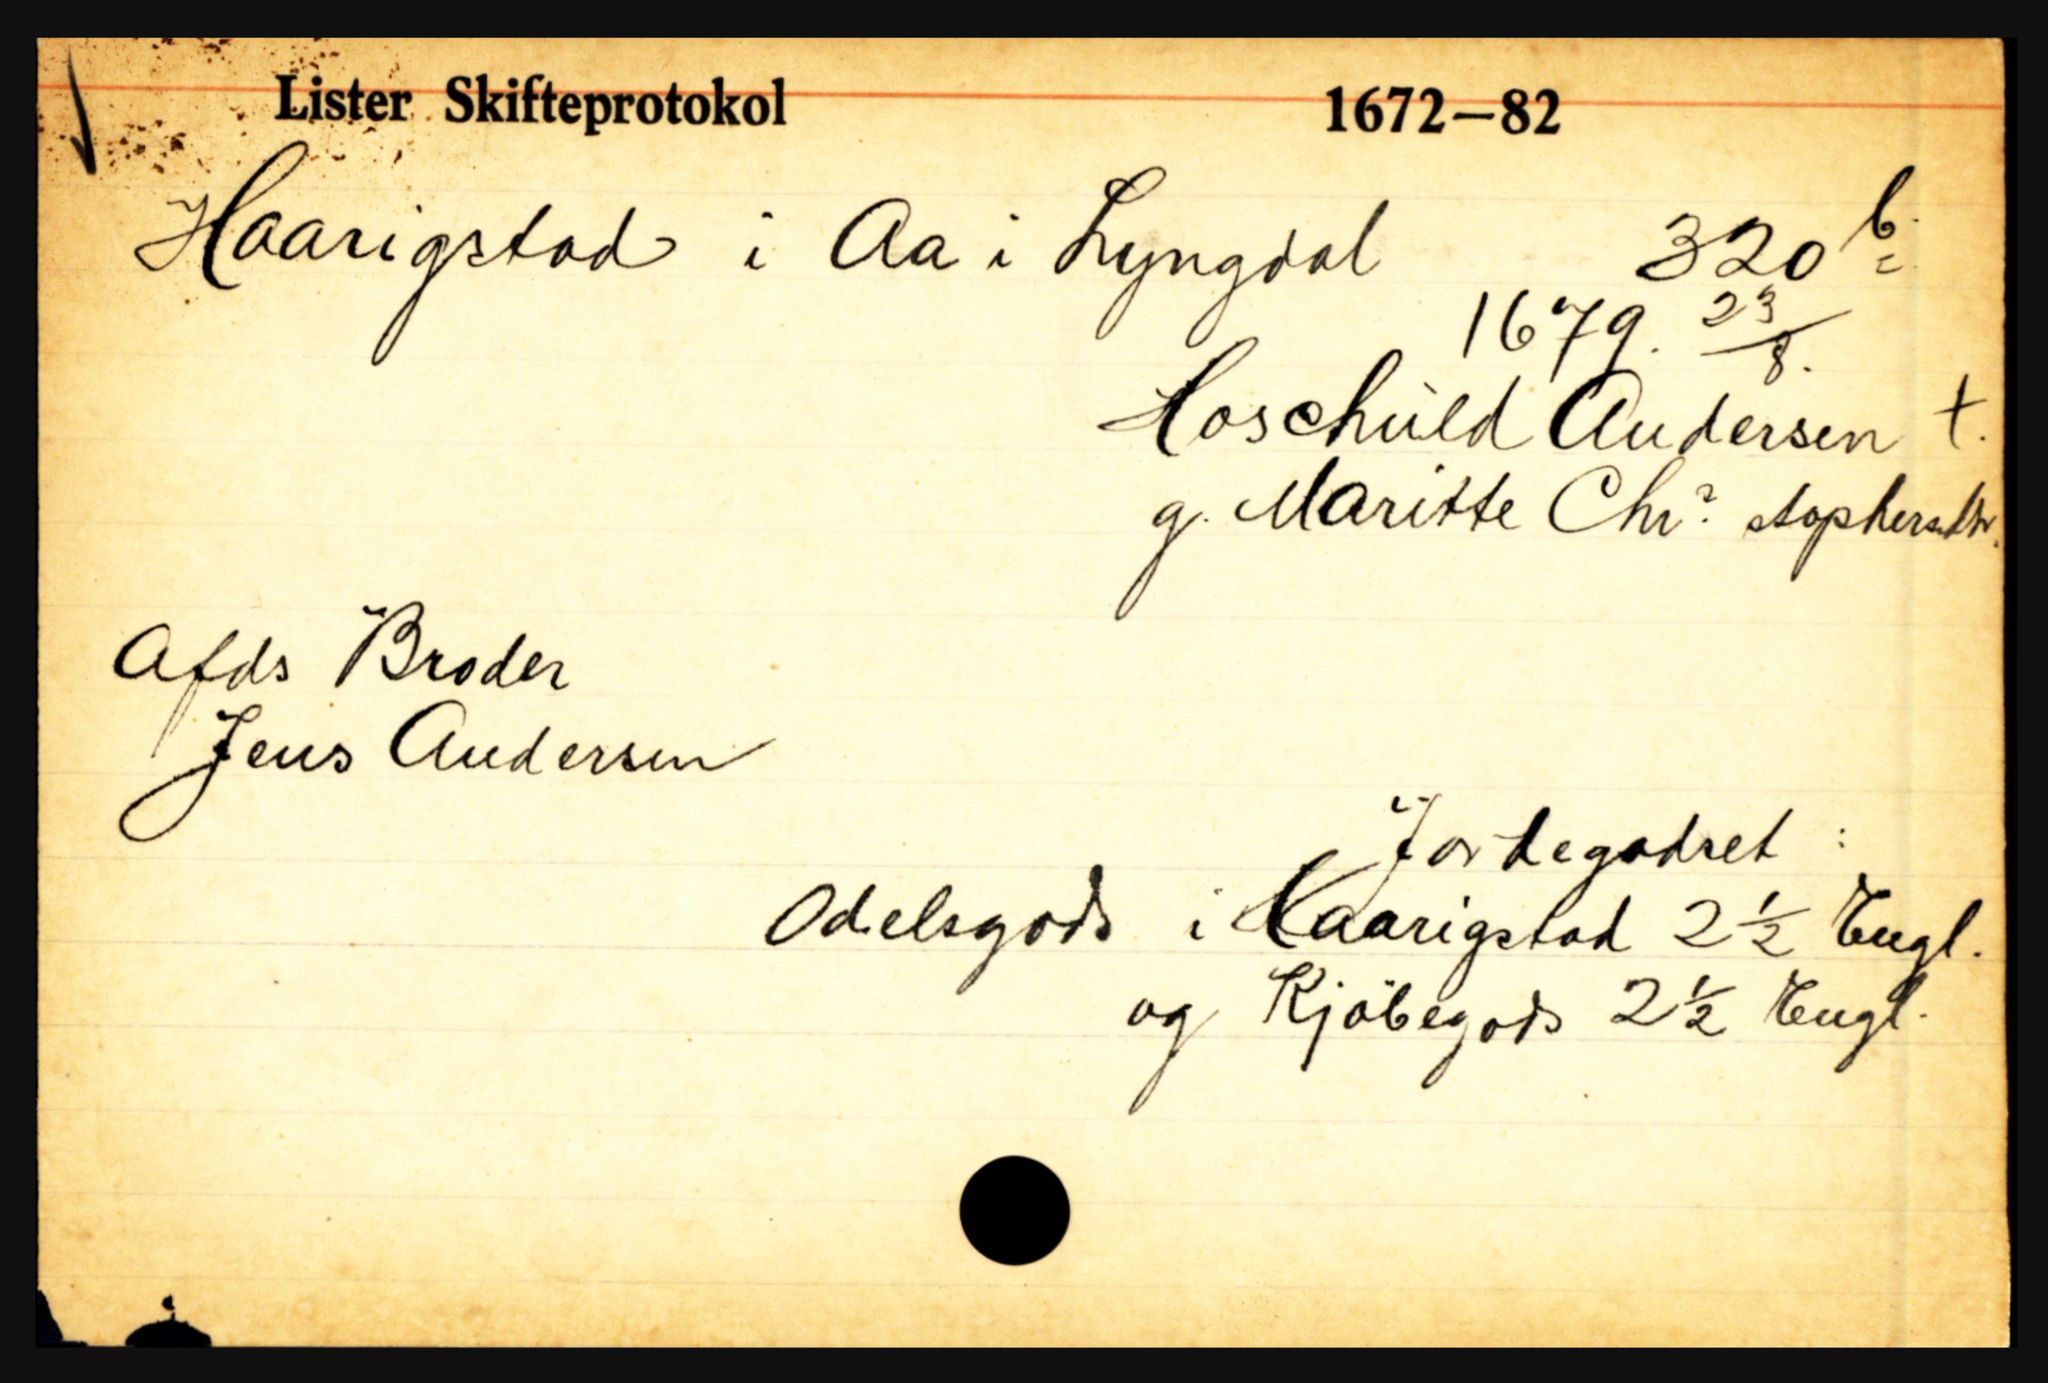 Lister Skifteprotokol 1672–82
Haarigstad i Aa i Lyngdal 320 b
1679. 23/8.
Hoschuld Andersen †.
g. Maritte Chr? stophersdtr.
Afds Broder
Jens Andersen
Jordegodset :
Odelsgods i Haarigstad 2 1/2 Engl.
og Kjöbegods 2 1/2 Engl.